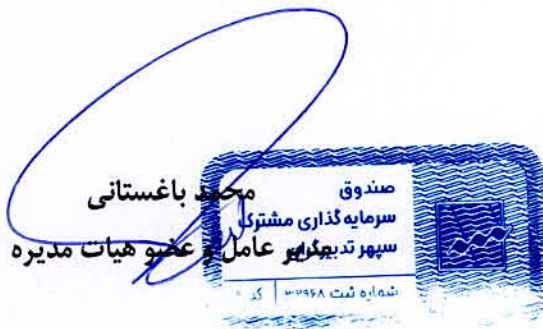 محمد باغستانی
مدیر عامل و عضو هیات مدیره
صندوق
سرمایه گذاری مشترک
سپهر تدبیرگران
شماره ثبت ۳۲۹۶۸